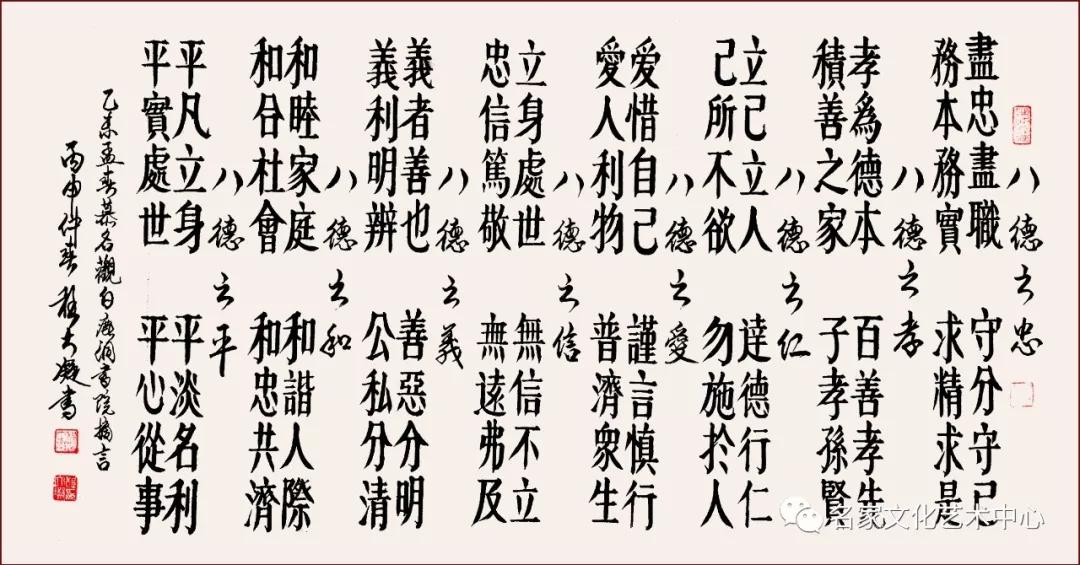 八德之忠
盡忠盡職 守分守己
務本務實 求精求是
八德之孝
孝爲德本 百善孝先
積善之家 子孝孫賢
八德之仁
立己立人 達德行仁
己所不欲 勿施於人
八德之愛
爱惜自己 謹言慎行
愛人利物 普濟衆生
八德之信
立身處世 無信不立
忠信篤敬 無遠弗及
八德之義
義者善也 善惡分明
義利明辨 公私分清
八德之和
和睦家庭 和諧人際
和合社會 和忠共濟
八德之平
平凡立身 平淡名利
平實處世 平心從事
乙未孟春慕名觀白鹿洞書院摘言
丙申仲春 大凝書
名家文化艺术中心